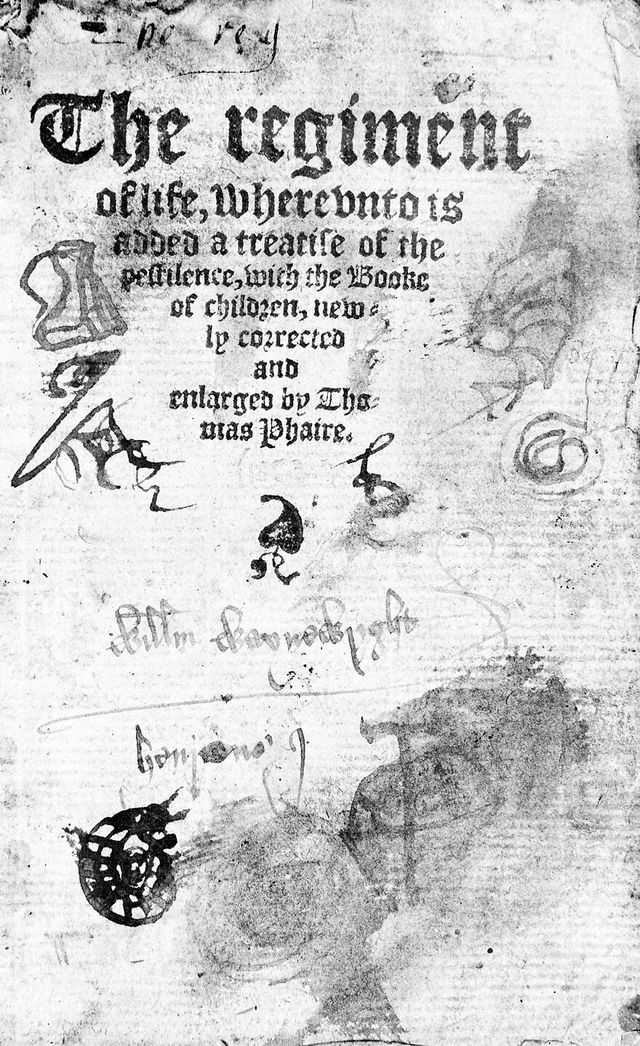 The regiment
of life, wherevnto is
added a treatise of the
pestilence, with the Booke
of children, new-
ly corrected
and
enlarged by Tho-
mas Phaire.